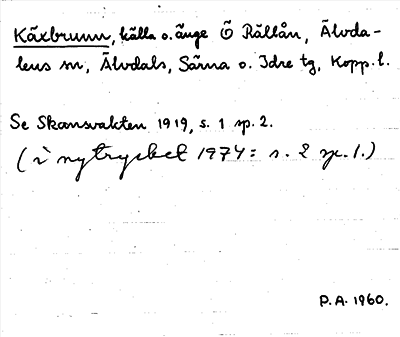 Käxbrunn, källa o. änge Ö Rällån, Älvda-
lens sn, Älvdals, Särna o. Idre tg, Kopp. l.
Se Skansvakten 1919, s. 1 sp. 2.
(i nytrycket 1974: s. 2 sp. 1.)
P.A. 1960.